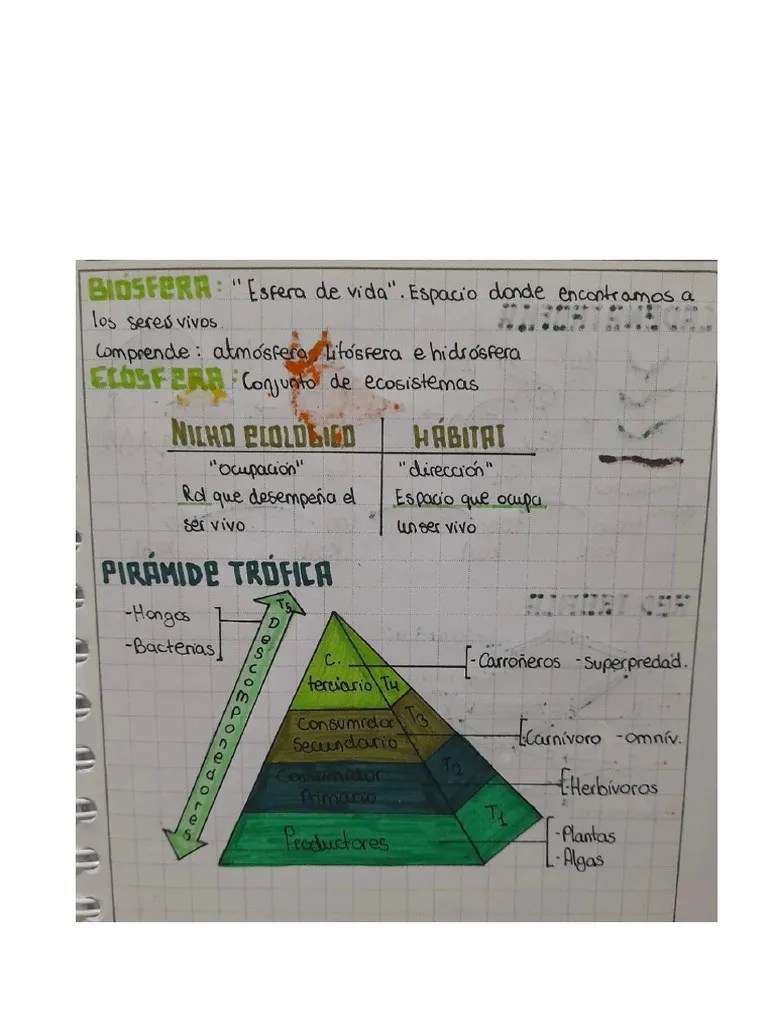 BIÓSFERA: "Esfera de vida". Espacio donde encontramos a
los seres vivos.
Comprende: atmósfera, Litósfera e hidrósfera
ECÓSFERA: Conjunto de ecosistemas
NICHO ECOLÓGICO
HÁBITAT
"ocupación"
"dirección"
Rol que desempeña el
Espacio que ocupa
ser vivo
un ser vivo
PIRÁMIDE TRÓFICA
-Hongos
-Bacterias
T5
Descomponedores
C.
terciario
T4
-Carroñeros -superpredad.
Consumidor
Secundario
T3
-Carnívoro -omnív.
Consumidor
Primario
T2
-Herbívoros
Productores
T1
-Plantas
-Algas